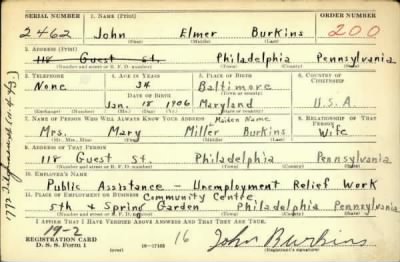 SERIAL NUMBER 1. NAME (Print) ORDER NUMBER
2462 John Elmer Burkins 200
(First) (Middle) (Last)
2. ADDRESS (Print)
118 Guest St. Philadelphia Pennsylvania
(Number and street or R. F. D. number) (Town) (County) (State)
3. TELEPHONE 4. AGE IN YEARS 5. PLACE OF BIRTH 6. COUNTRY OF CITIZENSHIP
None 34 Baltimore
DATE OF BIRTH (Town or county)
Jan. 18 1906 Maryland U.S.A.
(Exchange) (Number) (Mo.) (Day) (Yr.) (State or country)
7. NAME OF PERSON WHO WILL ALWAYS KNOW YOUR ADDRESS Maiden Name 8. RELATIONSHIP OF THAT PERSON
Mrs. Mary Miller Burkins Wife
(Mr., Mrs., Miss) (First) (Middle) (Last)
9. ADDRESS OF THAT PERSON
118 Guest St. Philadelphia Pennsylvania
(Number and street or R. F. D. number) (Town) (County) (State)
10. EMPLOYER'S NAME
Public Assistance - Unemployment Relief Work
11. PLACE OF EMPLOYMENT OR BUSINESS Community Centre
5th & Spring Garden Philadelphia Pennsylvania
(Number and street or R. F. D. number) (Town) (County) (State)
I AFFIRM THAT I HAVE VERIFIED ABOVE ANSWERS AND THAT THEY ARE TRUE.
19-2
REGISTRATION CARD
D. S. S. Form 1 16-17105 16 John Burkins
(Registrant's signature)